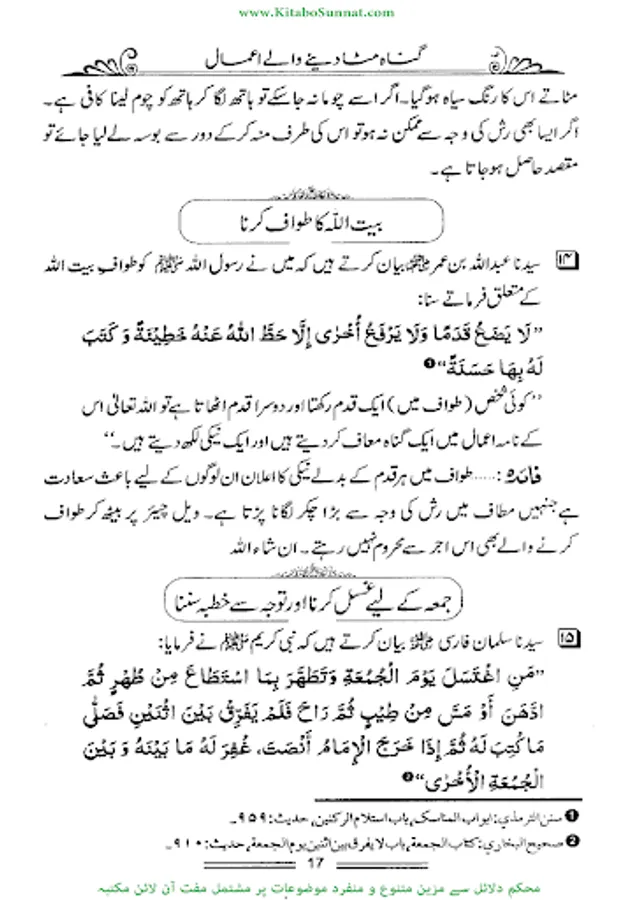 www.KitaboSunnat.com
گناہ مٹا دینے والے اعمال
مٹاتے اس کا رنگ سیاہ ہو گیا۔ اگر اسے چوما نہ جا سکے تو ہاتھ لگا کر ہاتھ کو چوم لینا کافی ہے۔
اگر ایسا بھی رش کی وجہ سے ممکن نہ ہو تو اس کی طرف منہ کر کے دور سے بوسہ لے لیا جائے تو
مقصد حاصل ہو جاتا ہے۔
بیت اللہ کا طواف کرنا
۱۴ سیدنا عبداللہ بن عمر رضی اللہ عنہما بیان کرتے ہیں کہ میں نے رسول اللہ ﷺ کو طوافِ بیت اللہ
کے متعلق فرماتے سنا:
”لَا يَضَعُ قَدَمًا وَلَا يَرْفَعُ أُخْرٰى إِلَّا حَطَّ اللّٰهُ عَنْهُ خَطِيْئَةً وَ كَتَبَ
لَهُ بِهَا حَسَنَةً“ ❶
”کوئی شخص (طواف میں) ایک قدم رکھتا اور دوسرا قدم اٹھاتا ہے تو اللہ تعالیٰ اس
کے نامہ اعمال میں ایک گناہ معاف کر دیتے ہیں اور ایک نیکی لکھ دیتے ہیں۔“
فائدہ:..... طواف میں ہر قدم کے بدلے نیکی کا اعلان ان لوگوں کے لیے باعث سعادت
ہے جنہیں مطاف میں رش کی وجہ سے بڑا چکر لگانا پڑتا ہے۔ ویل چیئر پر بیٹھ کر طواف
کرنے والے بھی اس اجر سے محروم نہیں رہتے۔ ان شاء اللہ
جمعہ کے لیے غسل کرنا اور توجہ سے خطبہ سننا
۱۵ سیدنا سلمان فارسی رضی اللہ عنہ بیان کرتے ہیں کہ نبی کریم ﷺ نے فرمایا:
”مَنِ اغْتَسَلَ يَوْمَ الْجُمُعَةِ وَتَطَهَّرَ بِمَا اسْتَطَاعَ مِنْ طُهْرٍ ثُمَّ
ادَّهَنَ أَوْ مَسَّ مِنْ طِيْبٍ ثُمَّ رَاحَ فَلَمْ يُفَرِّقْ بَيْنَ اثْنَيْنِ فَصَلّٰى
مَا كُتِبَ لَهُ ثُمَّ إِذَا خَرَجَ الْإِمَامُ أَنْصَتَ، غُفِرَ لَهُ مَا بَيْنَهُ وَ بَيْنَ
الْجُمُعَةِ الْأُخْرٰى“ ❷
❶ سنن الترمذي: ابواب المناسك، باب استلام الركنين، حديث: ۹۵۹۔
❷ صحيح البخاري: كتاب الجمعة، باب لا يفرق بين اثنين يوم الجمعة، حديث: ۹۱۰۔
17
محکم دلائل سے مزین متنوع و منفرد موضوعات پر مشتمل مفت آن لائن مکتبہ